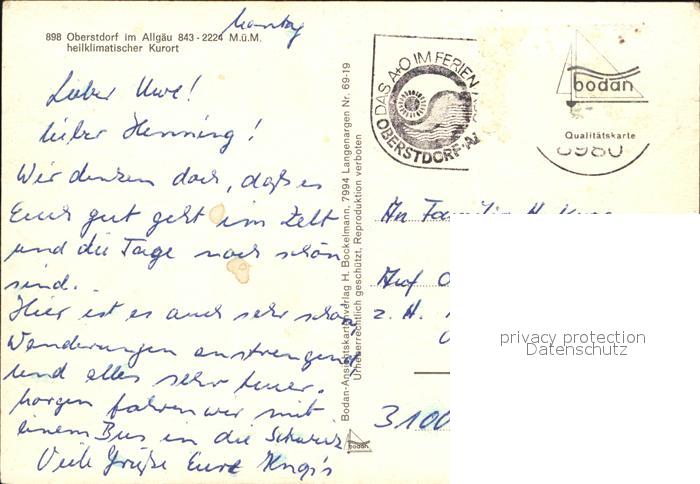 Montag
898 Oberstdorf im Allgäu 843-2224 M.ü.M.
heilklimatischer Kurort
Lieber Uwe!
lieber Henning!
Wir denken doch, daß es
Euch gut geht im Zelt
und die Tage noch schön
sind.
Hier ist es auch sehr schön
Wanderungen anstrengend
und alles sehr teuer.
Morgen fahren wir mit
einem Bus in die Schweiz
Viele Grüße Eure
Bodan-Ansichtskartenverlag H. Bockelmann, 7994 Langenargen Nr. 69-19
Urheberrechtlich geschützt, Reproduktion verboten
bodan
DAS A+O IM FERIEN
OBERSTDORF
bodan
Qualitätskarte
8980
An Familie H.
Auf
z. H.
3100
privacy protection
Datenschutz